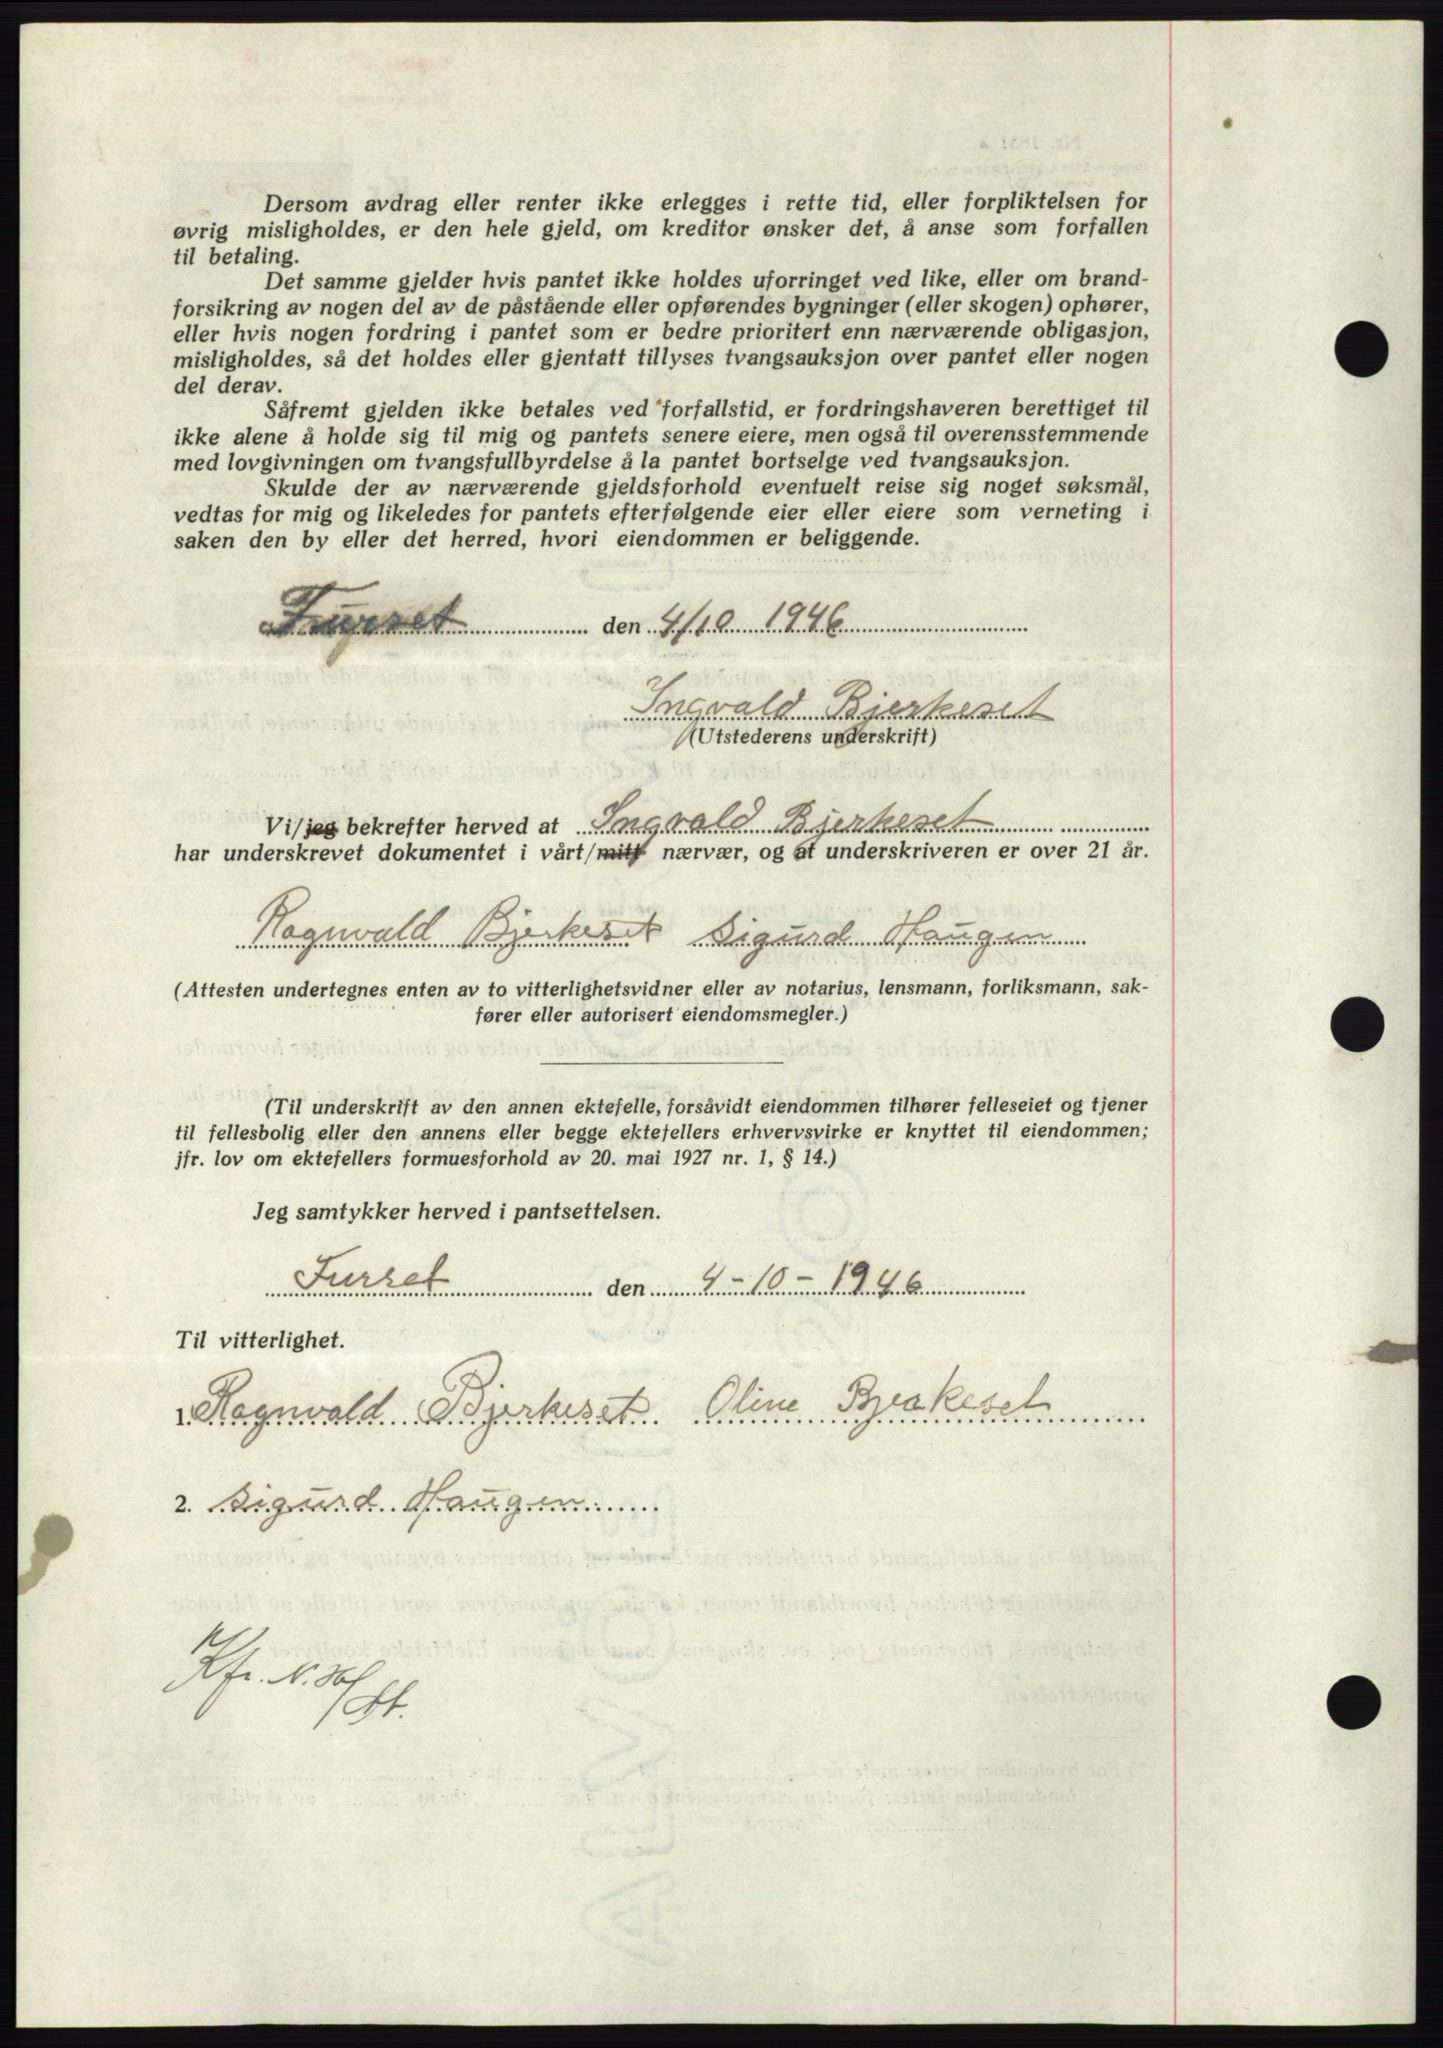 Dersom avdrag eller renter ikke erlegges i rette tid, eller forpliktelsen for
øvrig misligholdes, er den hele gjeld, om kreditor ønsker det, å anse som forfallen
til betaling.
Det samme gjelder hvis pantet ikke holdes uforringet ved like, eller om brand-
forsikring av nogen del av de påstående eller opførendes bygninger (eller skogen) ophører,
eller hvis nogen fordring i pantet som er bedre prioritert enn nærværende obligasjon,
misligholdes, så det holdes eller gjentatt tillyses tvangsauksjon over pantet eller nogen
del derav.
Såfremt gjelden ikke betales ved forfallstid, er fordringshaveren berettiget til
ikke alene å holde sig til mig og pantets senere eiere, men også til overensstemmende
med lovgivningen om tvangsfullbyrdelse å la pantet bortselge ved tvangsauksjon.
Skulde der av nærværende gjeldsforhold eventuelt reise sig noget søksmål,
vedtas for mig og likeledes for pantets efterfølgende eier eller eiere som verneting i
saken den by eller det herred, hvori eiendommen er beliggende.
Furset den 4/10 1946
Ingvald Bjerkeset
(Utstederens underskrift)
Vi/jeg bekrefter herved at Ingvald Bjerkeset
har underskrevet dokumentet i vårt/mitt nærvær, og at underskriveren er over 21 år.
Ragnvald Bjerkeset Sigurd Haugen
(Attesten undertegnes enten av to vitterlighetsvidner eller av notarius, lensmann, forliksmann, sak-
fører eller autorisert eiendomsmegler.)
(Til underskrift av den annen ektefelle, forsåvidt eiendommen tilhører felleseiet og tjener
til fellesbolig eller den annens eller begge ektefellers erhvervsvirke er knyttet til eiendommen;
jfr. lov om ektefellers formuesforhold av 20. mai 1927 nr. 1, § 14.)
Jeg samtykker herved i pantsettelsen.
Furset den 4-10-1946
Til vitterlighet.
1. Ragnvald Bjerkeset Oline Bjerkeset
2. Sigurd Haugen
Kfr. N.